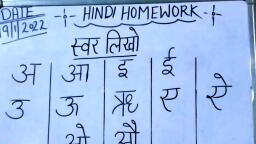 DATE -|- HINDI HOMEWORK -|-
19/1/2022
स्वर लिखो
अ आ इ ई
उ ऊ ऋ ए ऐ
ओ औ